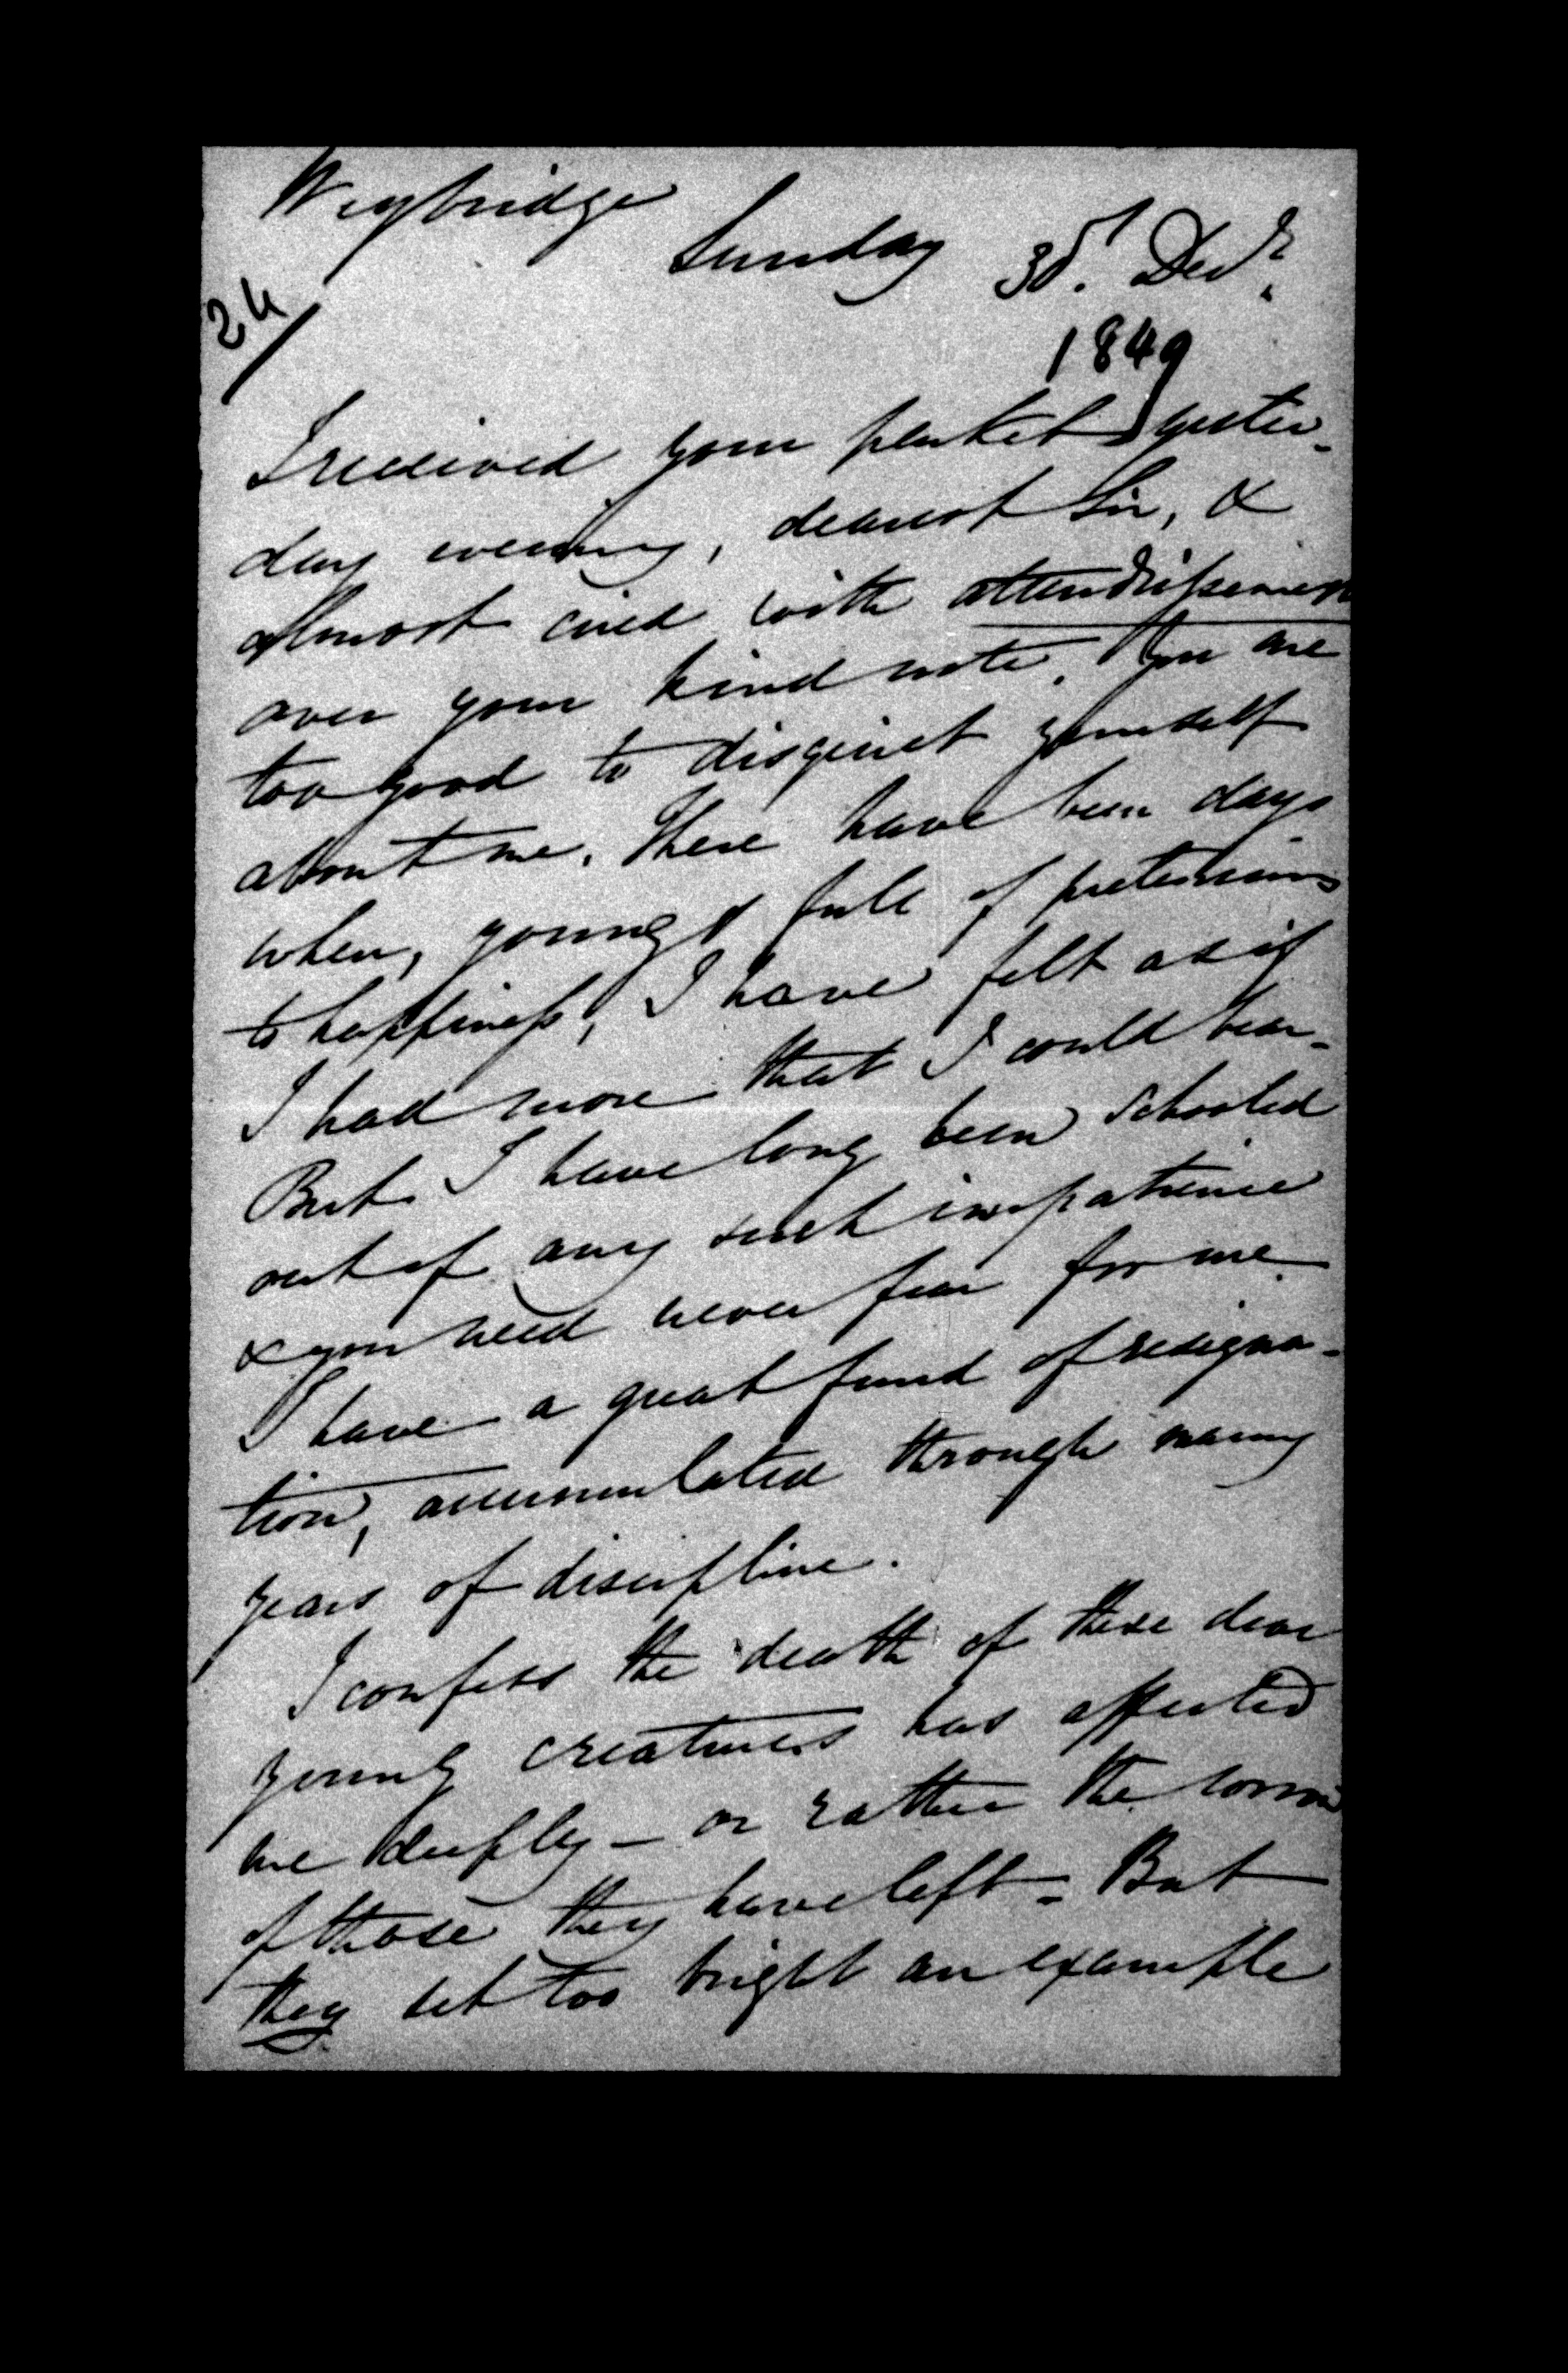 Weybridge
Sunday 30. Decr.
24/
1849
I received your packet yester-
day evening, dearest Sir, &
almost cried with attendrissement
over your kind note. You are
too good to disquiet yourself
about me. There have been days
when, young & full of pretensions
to happiness, I have felt as if
I had more that I could bear -
But I have long been schooled
out of any such impatience
& you need never fear for me.
I have a great fund of resigna-
tion, accumulated through many
years of discipline.
I confess the death of these dear
young creatures has affected
me deeply - or rather the sorrow
of those they have left - But
they set too bright an example